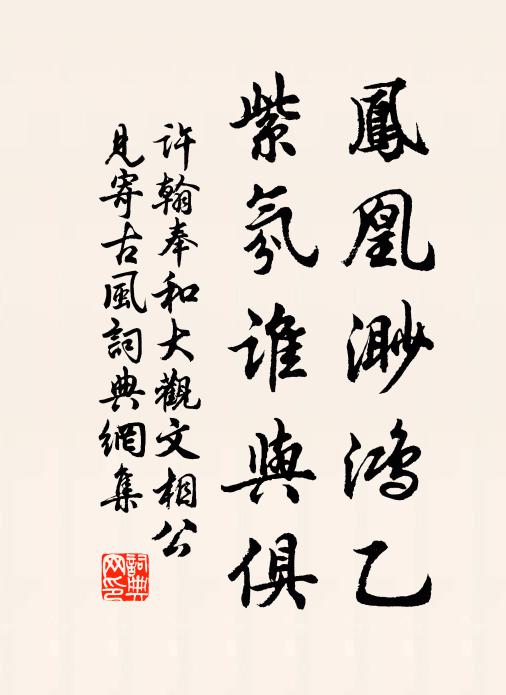 鳳凰渺鴻乙
紫氛誰與俱
許翰奉和大觀文相公
見寄古風詞典網集
詞典
网印